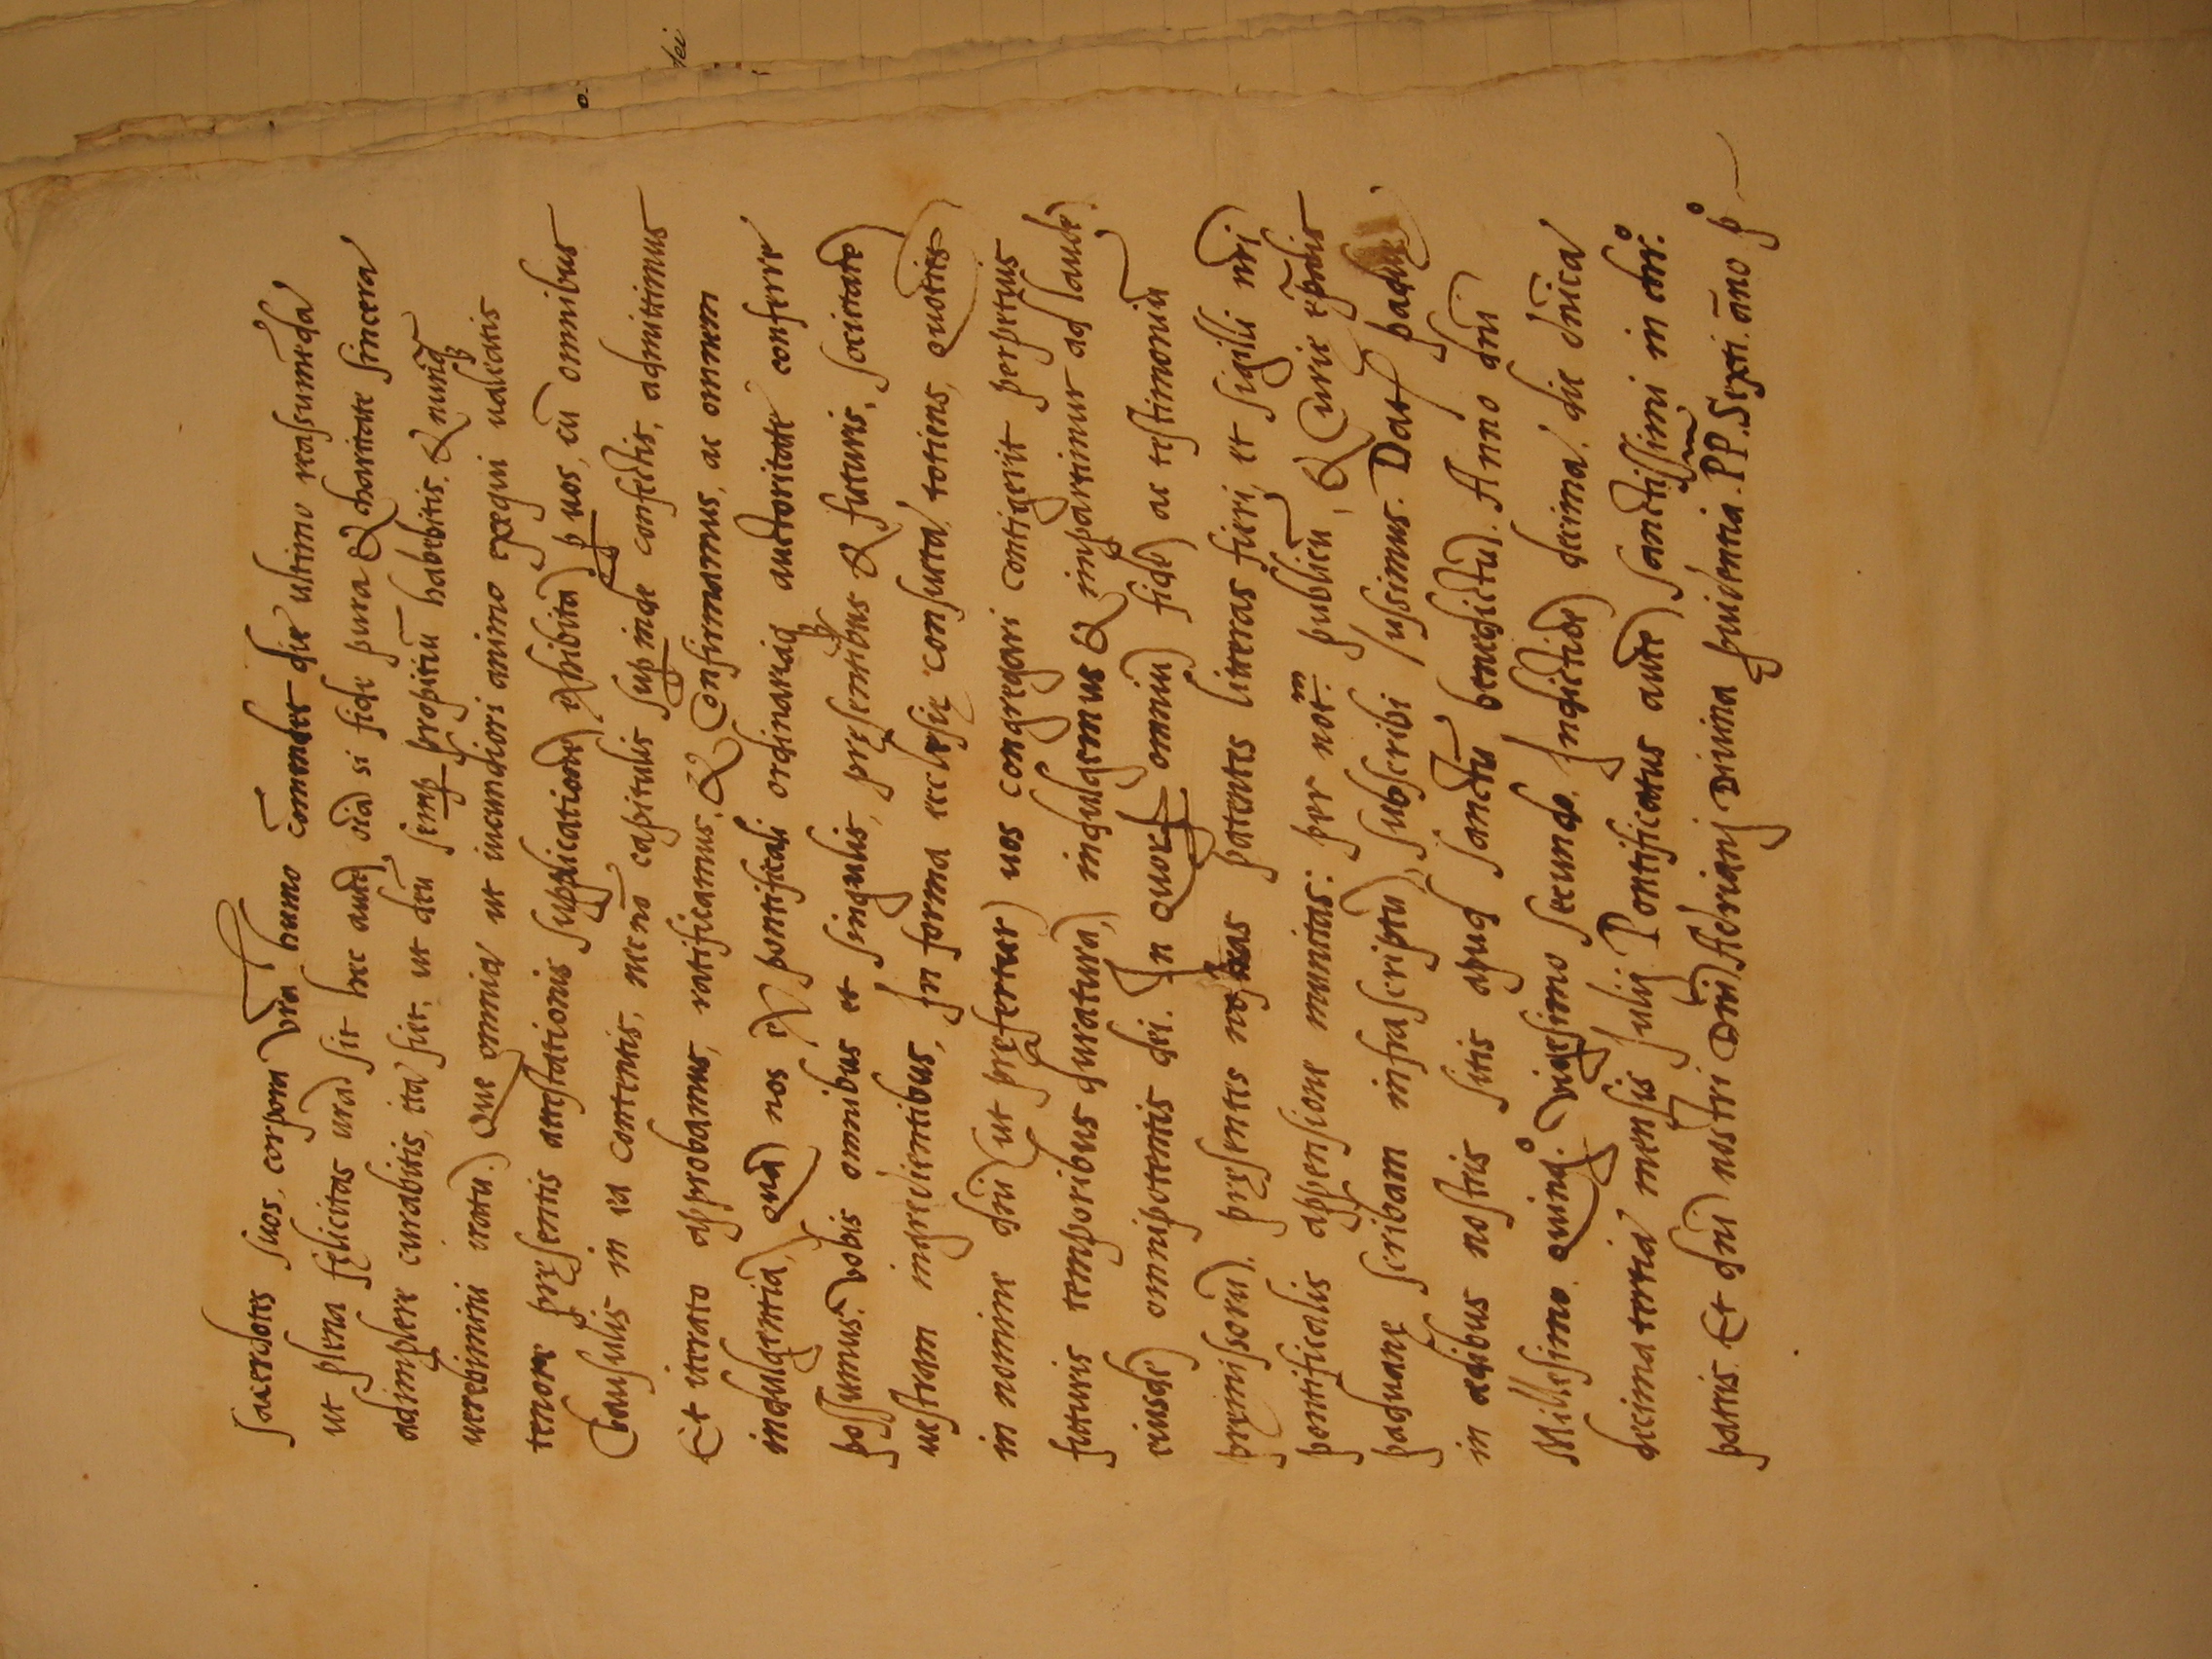 sacerdotes suos, corpora vra humo comendet die ultimo reasumeda
ut plena felicitas ura sit hec aute oia si fide pura & charitate sincera
adimplere curabitis, ita fiet, ut deu semp propitiu habebitis, & nunq
uerebimini iratu. Que omnia ut iucundiori animo exequi ualeatis
tenore presentis attestationis supplicatione exhibita p uos, cu omnibus
Clausulis in ea contentis, necno capitulis sup inde confectis, admittimus
Et iterato approbamus, ratificamus, & Confirmamus, ac omnem
indulgentia, qua nos ex pontificali ordinariaq auctoritate conferre
possumus. Vobis omnibus et singulis, presentibus & futuris, societate
uestram ingredientibus, In forma ecclesie consueta, totiens, quoties
in nomine dni (ut prefertur) uos congregari contigerit perpetuis
futuris temporibus duratura, indulgemus & impartimur ad laude
eiusde omnipotentis dei. In quor omniu fide ac testimoniu
premissoru. presentes nostras patentes litteras fieri, et sigilli nri
pontificalis appensione munitas: per notm. publicu, & Curie epalis
paduane scribam infrascriptu, subscribi iussimus. Dat padue
in edibus nostris sitis apud sanctu benedictu. Anno dni
Millesimo quingo. Vigesimo secundo. Indictione decima, die dnica
decima tertia mensis Iulij Pontificatus aute sanctissimi in chro.
patris. Et dni nostri Dni Adriani Divina providentia .PP. Sexti. anno po
o.
dei